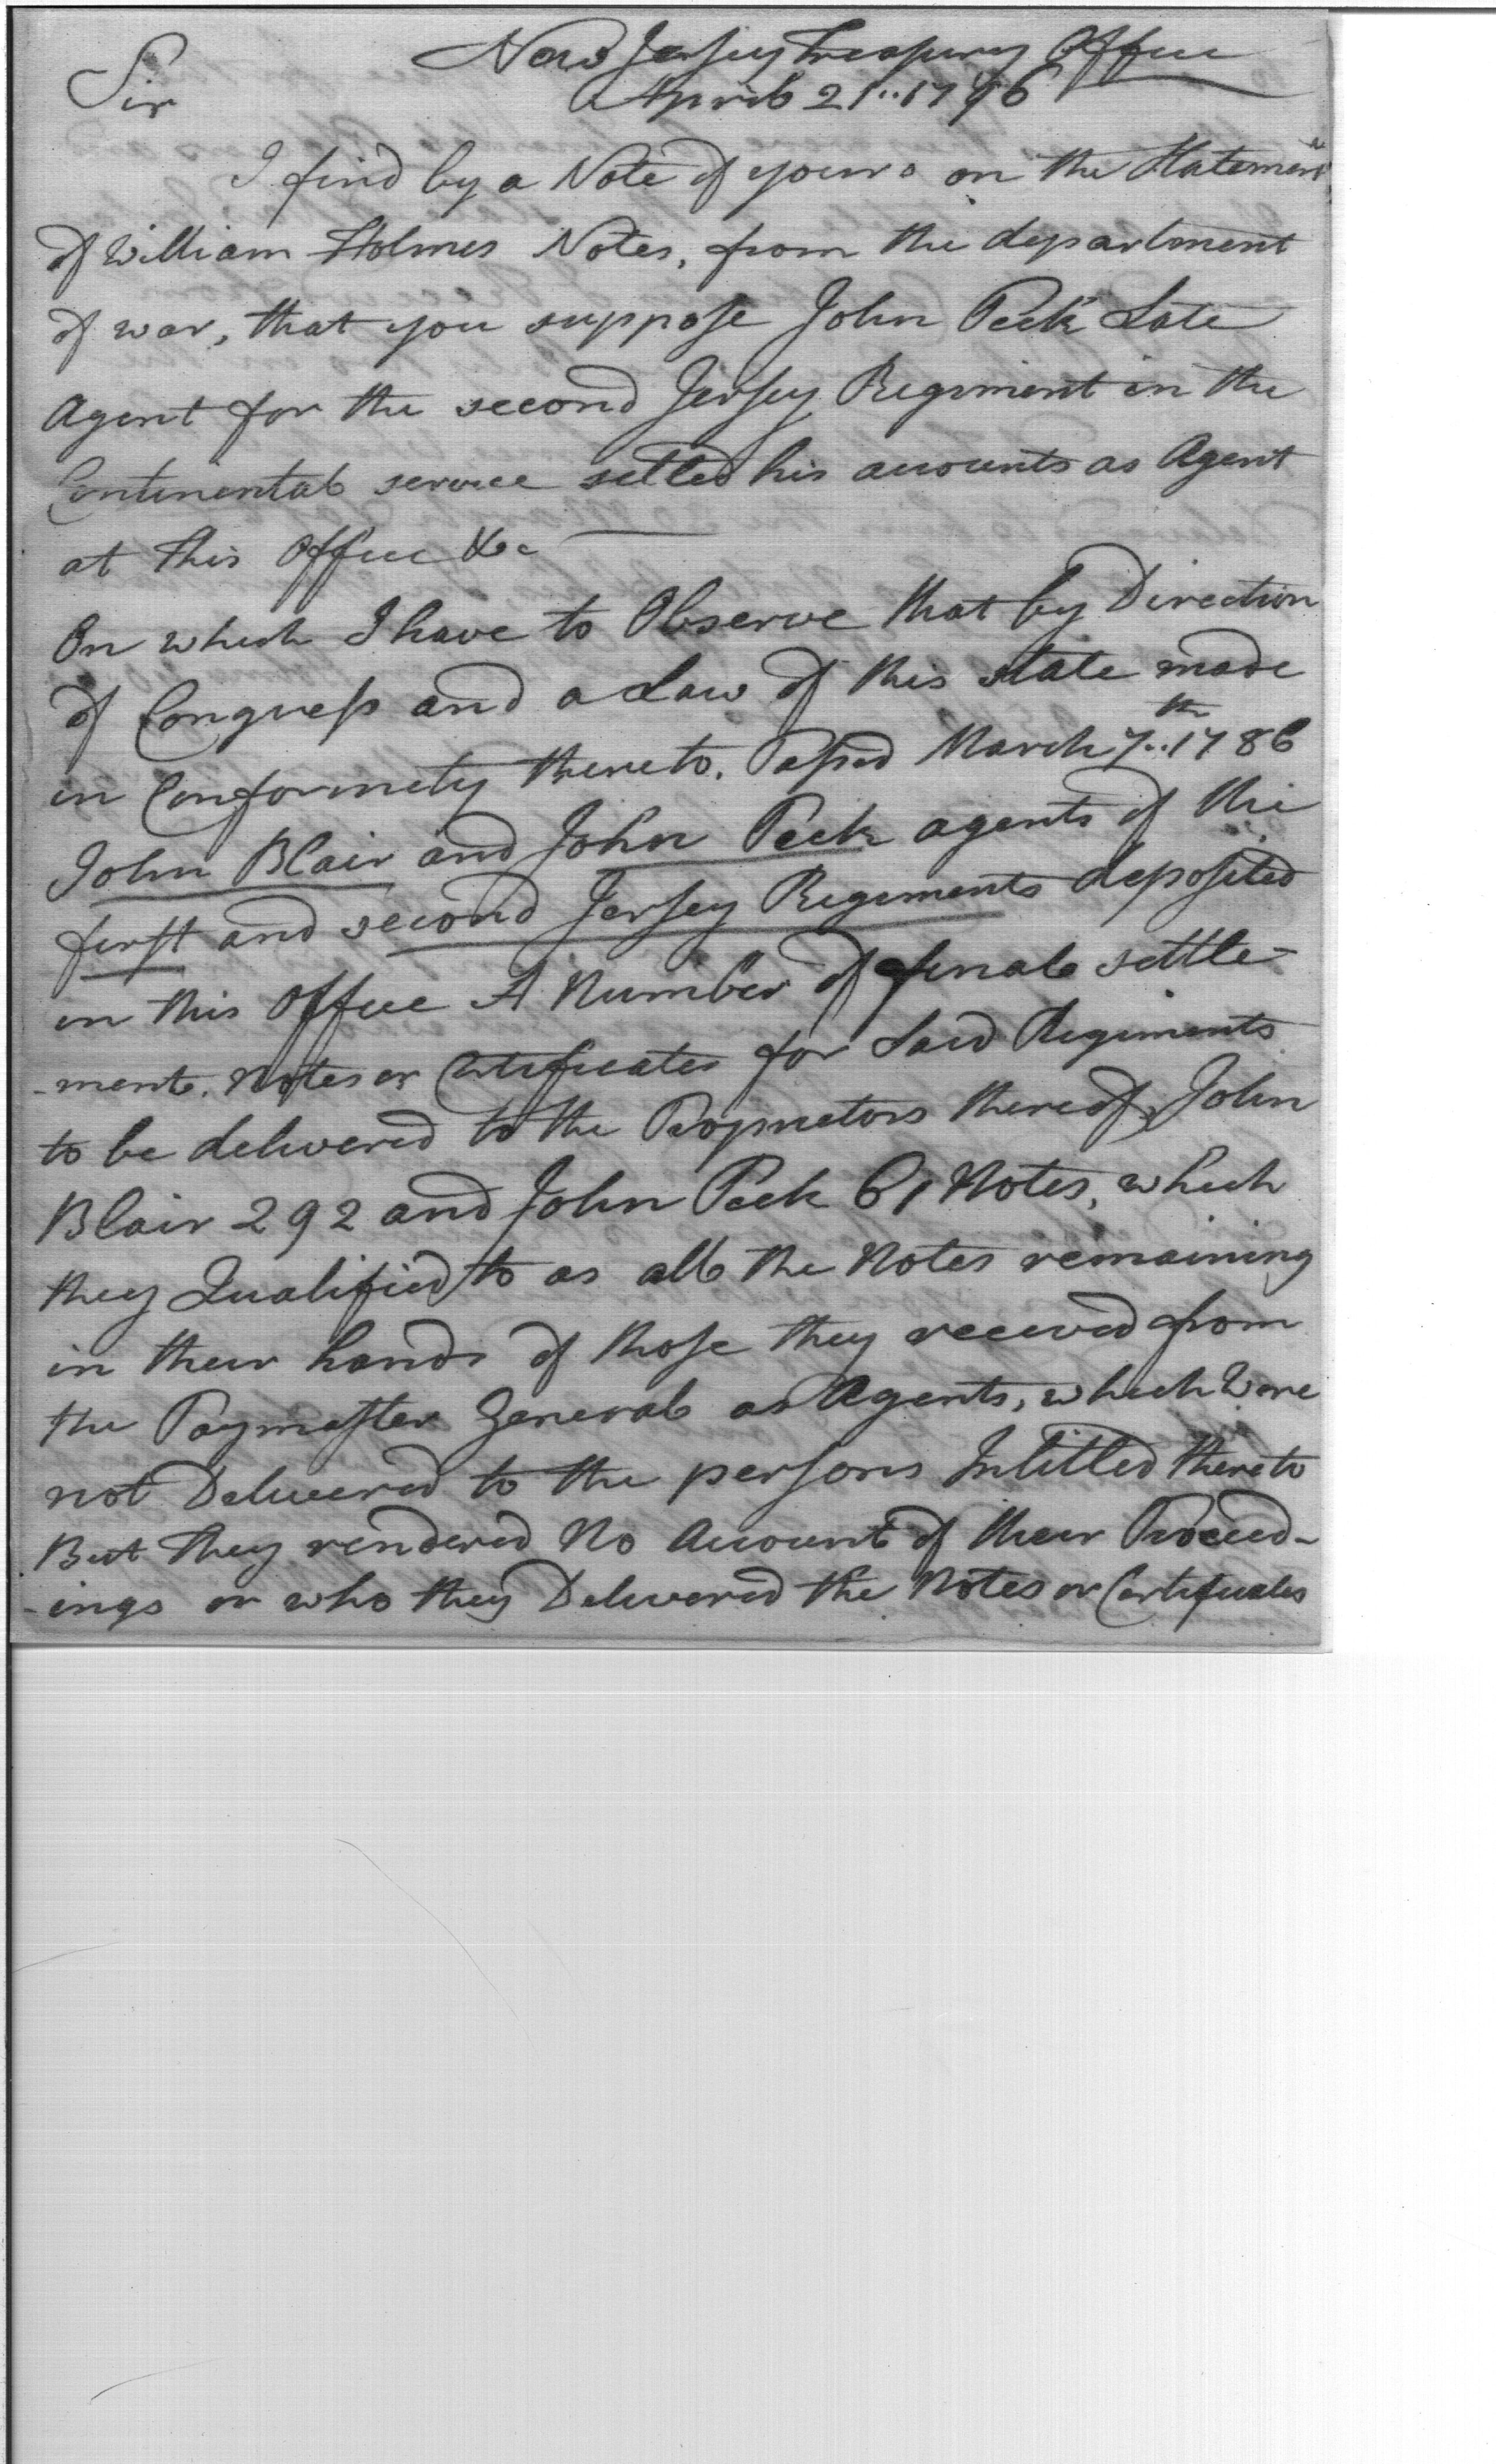 New Jersey Treasury Office
Sir April 21..1796
I find by a Note of yours on the Statement
of William Holmes Notes, from the department
of war, that you suppose John Peck Late
Agent for the second Jersey Regiment in the
Continental service settled his accounts as Agent
at this Office &c
On which I have to Observe that by Direction
of Congress and a Law of this state made
in Conformety thereto. Passed March 7th..1786
John Blair and John Peck agents of the
first and second Jersey Regiments deposited
in this Office A Number of final settle-
-ment. Notes or Certificates for Said Regiments
to be delivered to the Proprietors thereof, John
Blair 292 and John Peck 61 Notes, which
they Qualified to as all the Notes remaining
in their hands of those they received from
the Paymaster General as Agents, which Were
not Delivered to the persons Intitled thereto
But they rendered No Account of their Proceed-
-ings or who they Delivered the Notes or Certificates